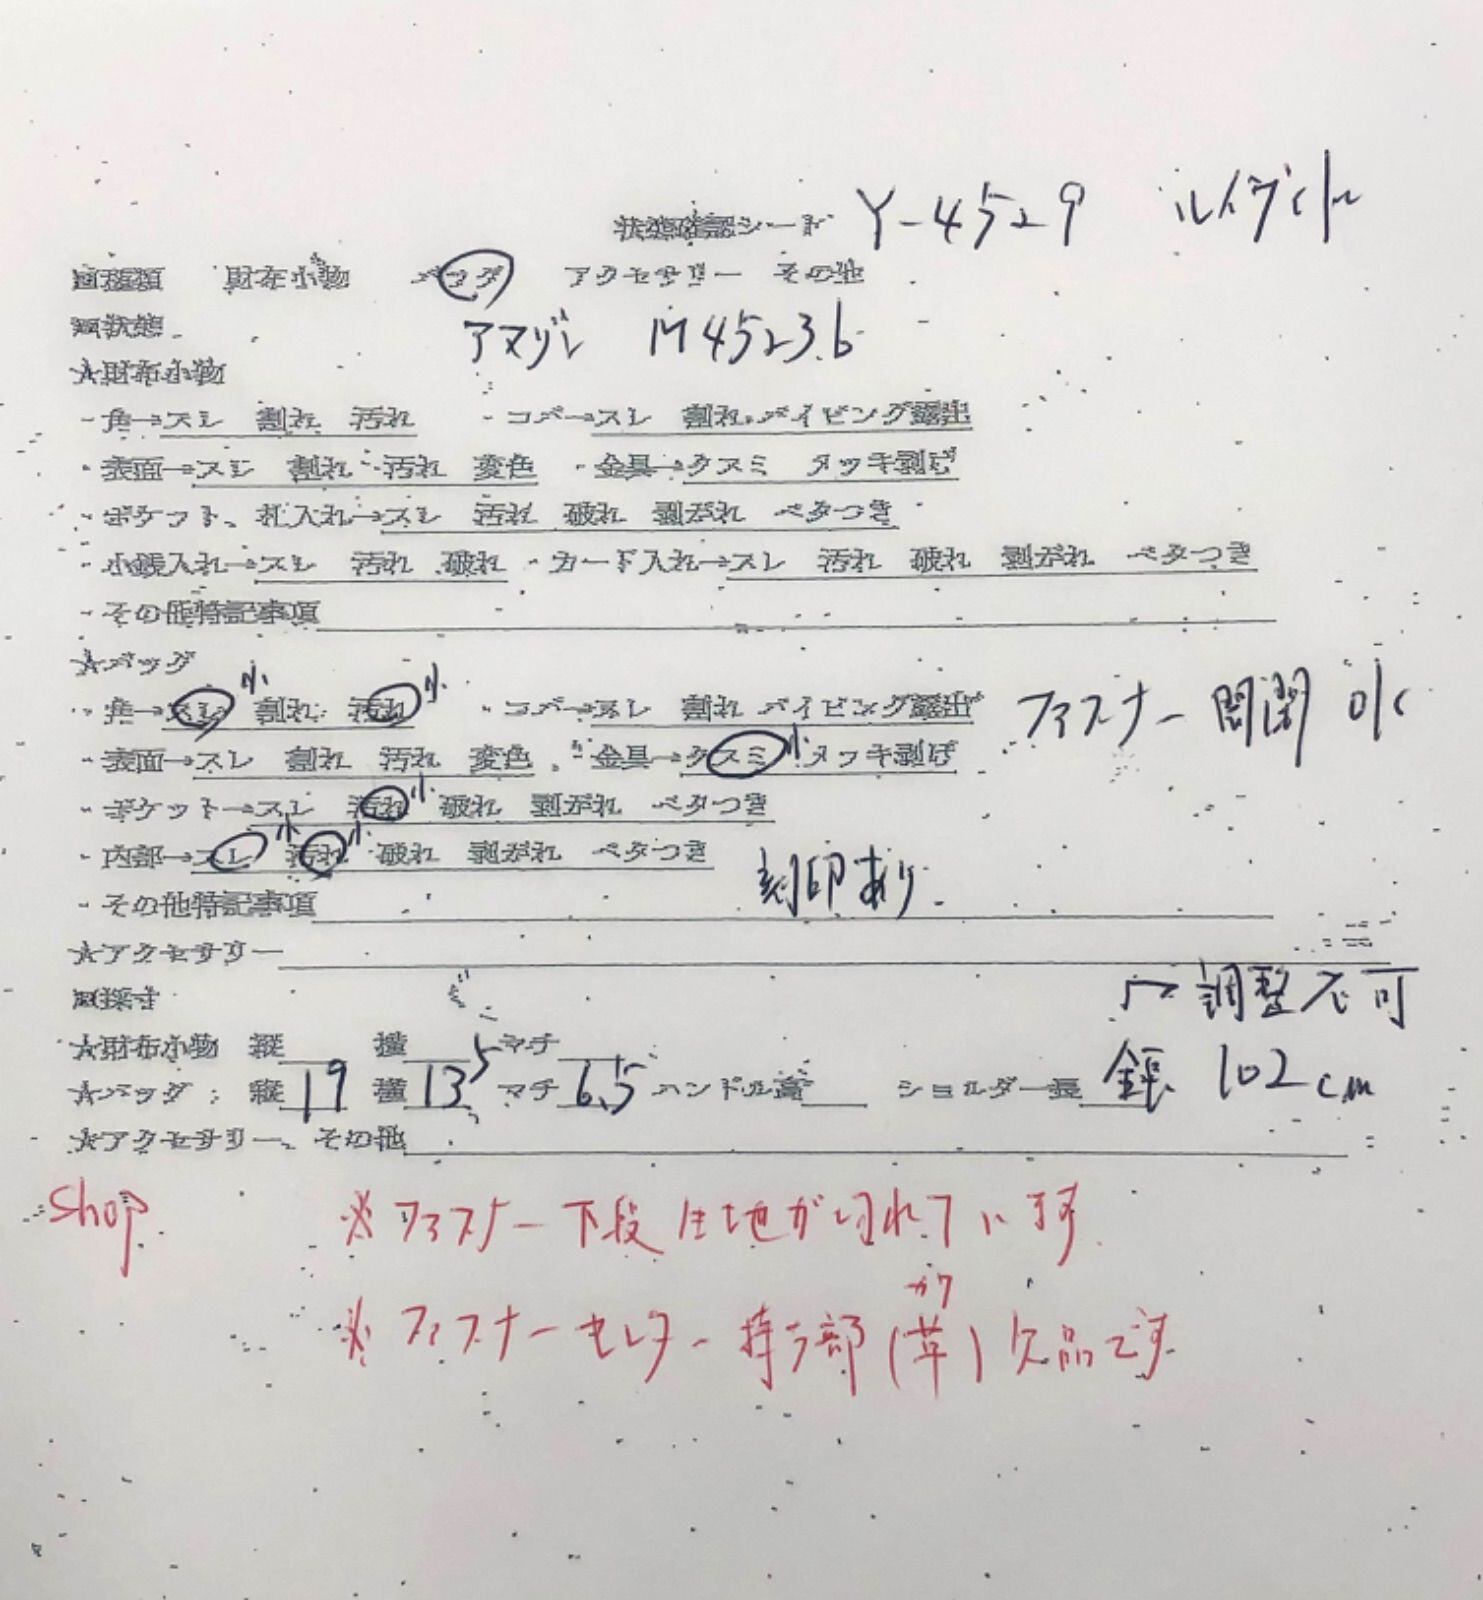 状態確認シート Y-4529 ルイヴィトン
■種類 財布小物 バッグ アクセサリー その他
■状態 アマゾン M45236
★財布小物
・角→スレ 割れ 汚れ ・コバ→スレ 割れ パイピング露出
・表面→スレ 割れ 汚れ 変色 ・金具→クスミ メッキ剥げ
・ポケット、札入れ→スレ 汚れ 破れ 剥がれ ベタつき
・小銭入れ→スレ 汚れ 破れ ・カード入れ→スレ 汚れ 破れ 剥がれ ベタつき
・その他特記事項
★バッグ
・角→スレ 小 割れ 汚れ 小 ・コバ→スレ 割れ パイピング露出 ファスナー開閉 OK
・表面→スレ 割れ 汚れ 変色 ・金具→クスミ 小 メッキ剥げ
・ポケット→スレ 汚れ 小 破れ 剥がれ ベタつき
・内部→スレ 小 汚れ 小 破れ 剥がれ ベタつき 刻印あり
・その他特記事項
★アクセサリー
■採寸 調整不可
★財布小物 縦 横 マチ
★バッグ: 縦 19 横 13.5 マチ 6.5 ハンドル高 ショルダー長 全長 102cm
★アクセサリー、その他
Shop ※ファスナー下段生地が切れています
カワ
※ファスナーセンター持つ部(革)欠品です